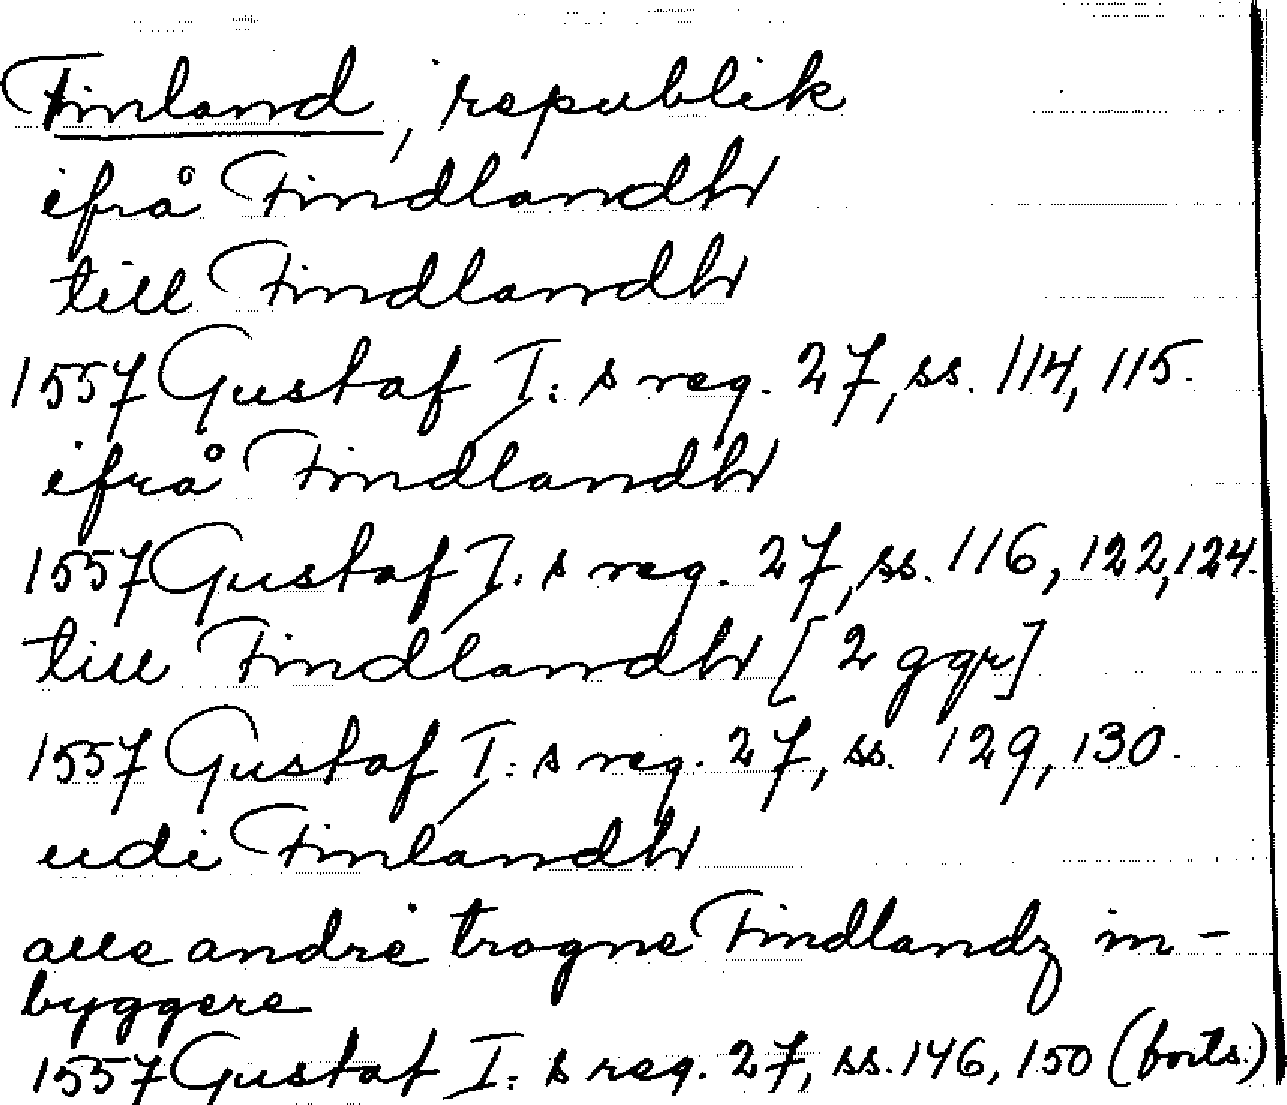 Finland, republik
ifrå Findlandh
till Findlandh
1557 Gustaf I: s reg. 27, ss. 114, 115.
ifrå Findlandh
1557 Gustaf I: s reg. 27, ss. 116, 122, 124.
till Findlandh [2 ggr]
1557 Gustaf I: s reg. 27, ss. 129, 130.
udi Finlandh
alle andre trogne Findlandz in-
byggere
1557 Gustaf I: s reg. 27, ss. 146, 150 (forts.)